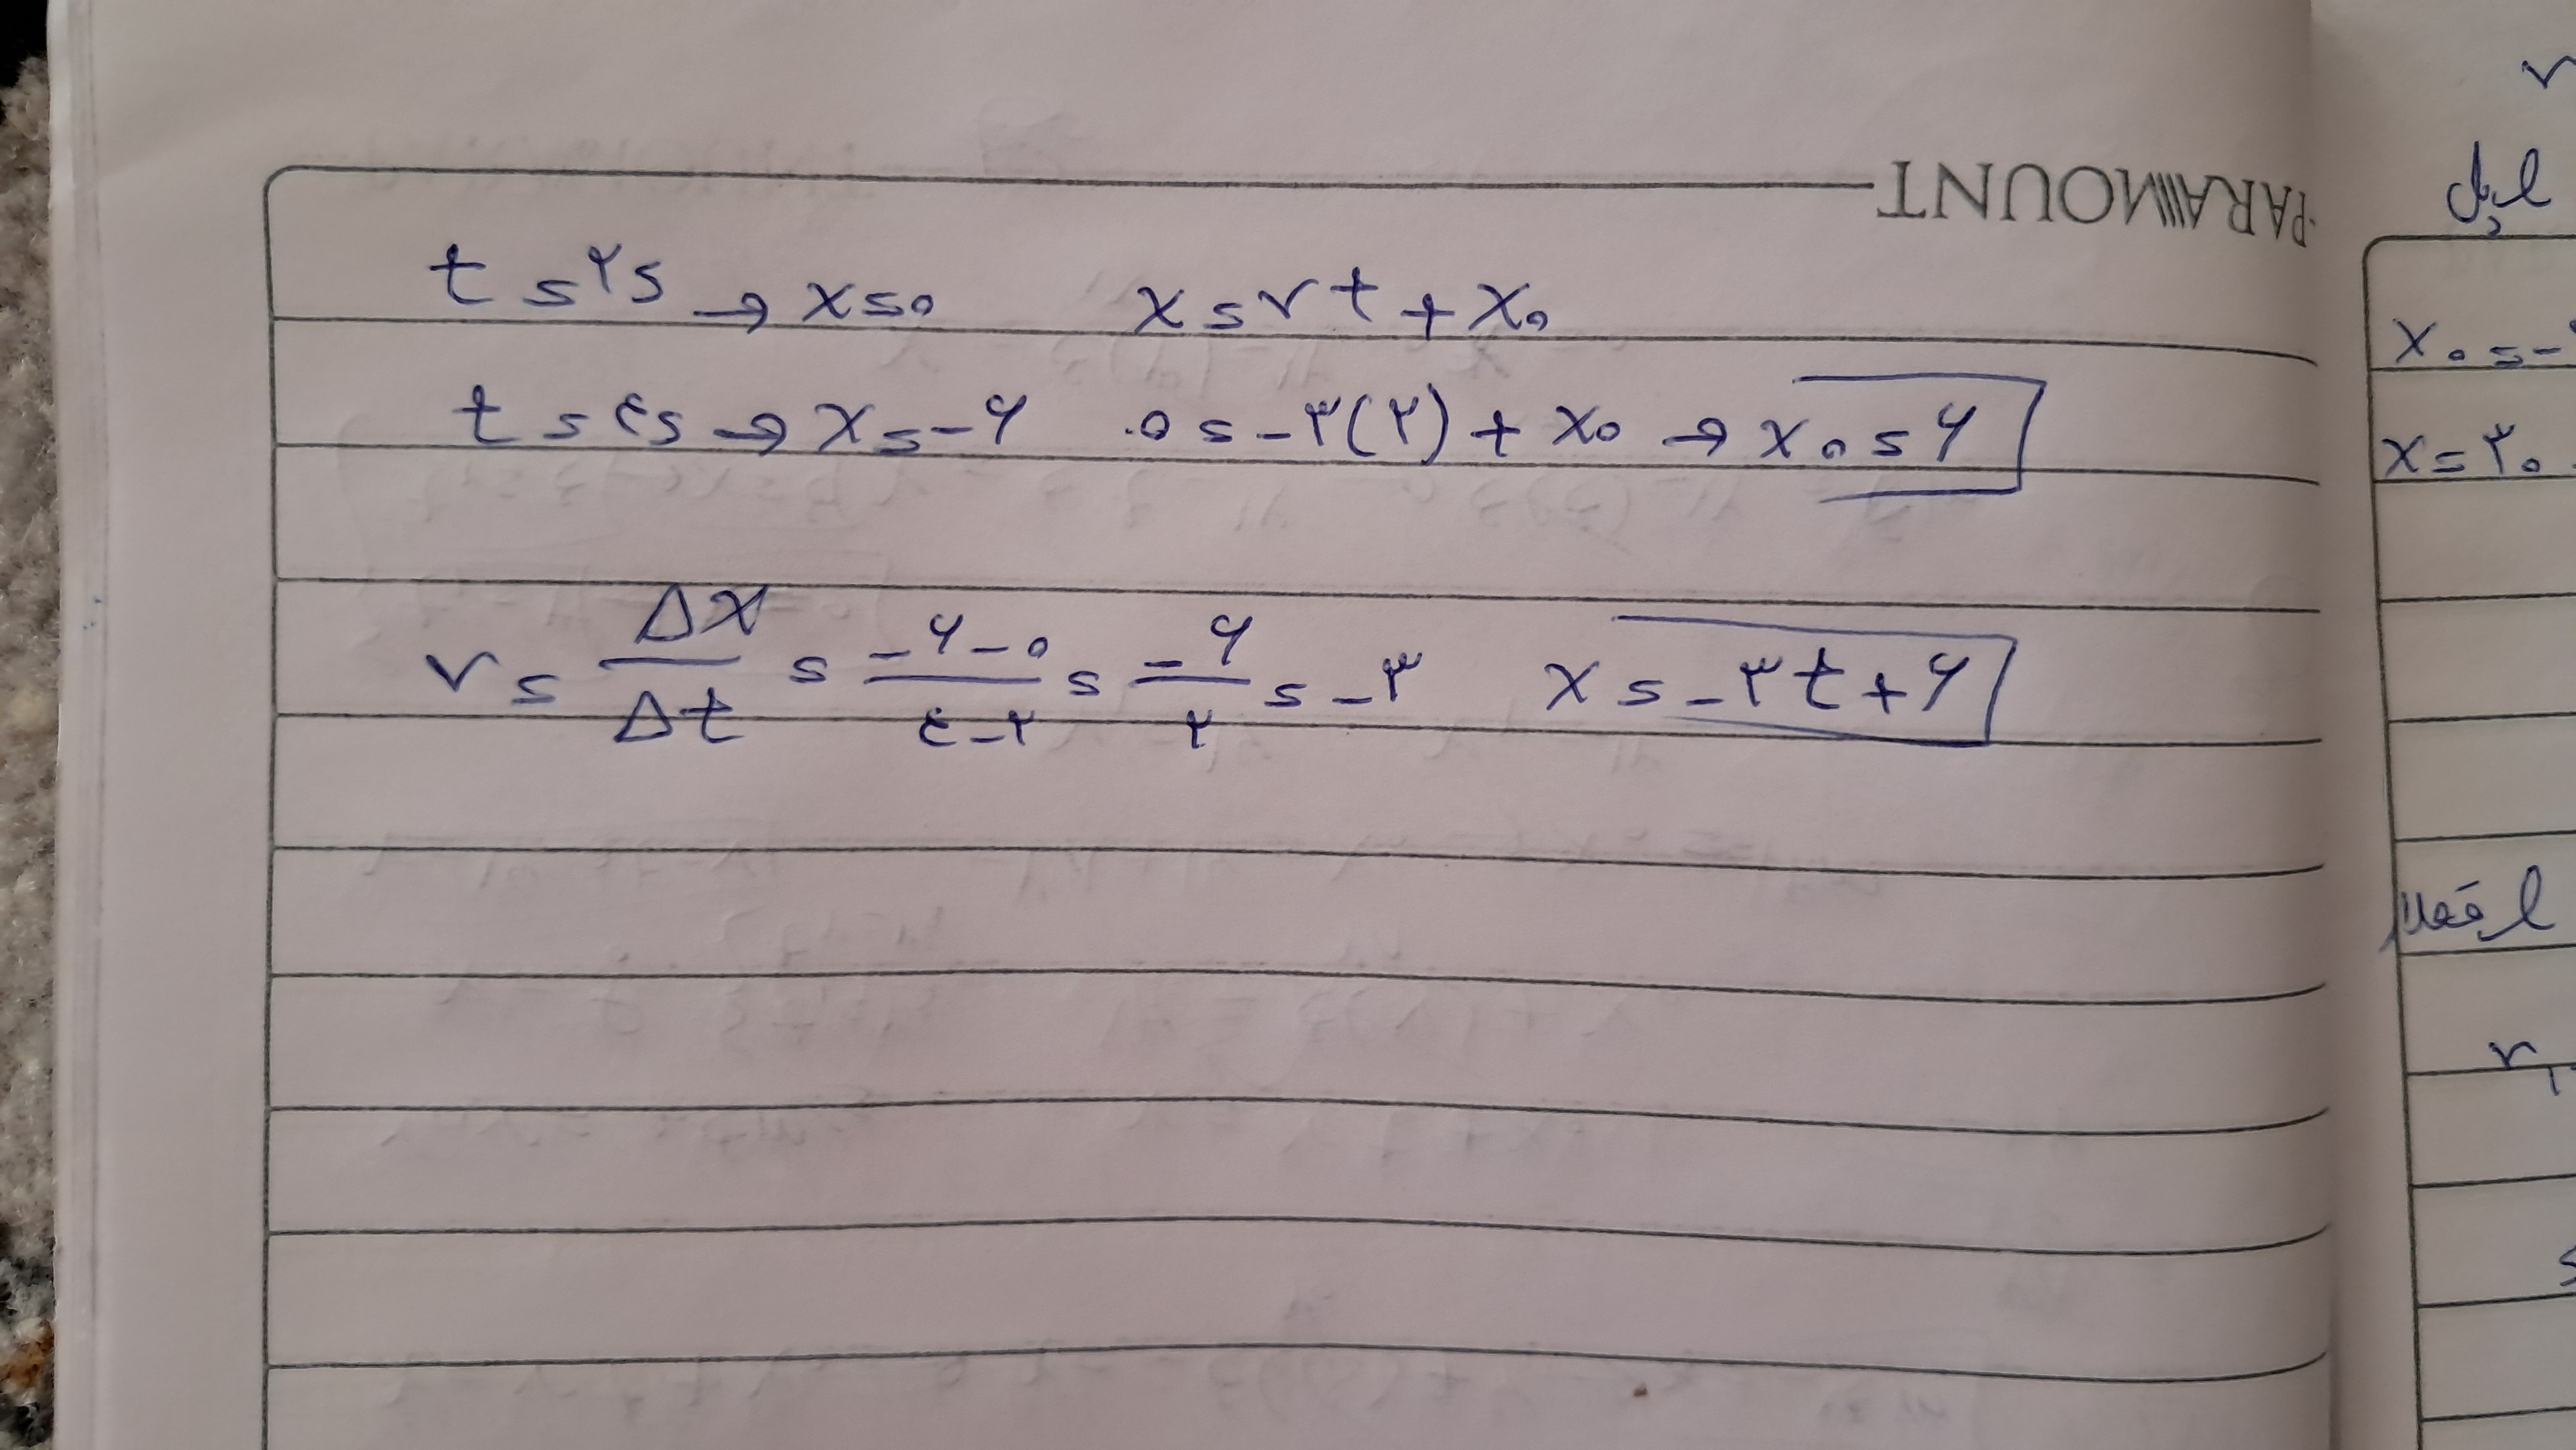 PARAMOUNT
t = ۲s → x = ۰    x = vt + x₀
t = ۴s → x = -۶    ۰ = -۳(۲) + x₀ → x₀ = ۶
v = Δx/Δt = (-۶-۰)/(۴-۲) = -۶/۲ = -۳    x = -۳t + ۶
x₀ = -
x = ۲۰